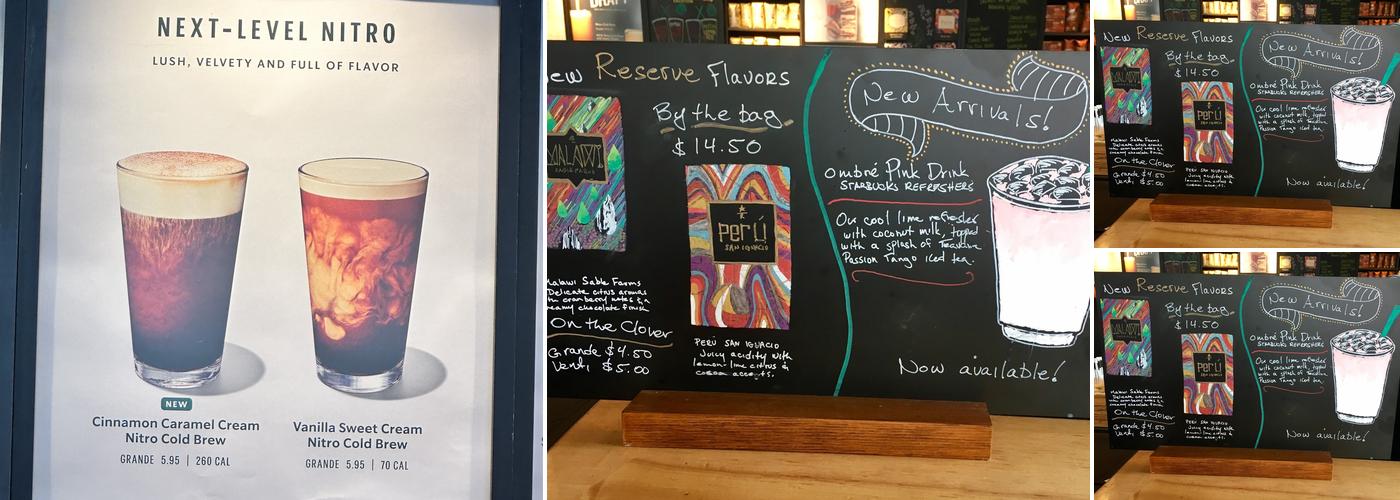 NEXT-LEVEL NITRO
LUSH, VELVETY AND FULL OF FLAVOR
NEW
Cinnamon Caramel Cream
Nitro Cold Brew
GRANDE 5.95 | 260 CAL
Vanilla Sweet Cream
Nitro Cold Brew
GRANDE 5.95 | 70 CAL
New Reserve Flavors
By the bag
$14.50
MALAWI
SABLE FARMS
Malawi Sable Farms
Delicate citrus aromas
with cranberry notes & a
creamy chocolate finish
On the Clover
Grande $4.50
Venti $5.00
PERÚ
SAN IGNACIO
PERÚ SAN IGNACIO
Juicy acidity with
lemon-lime citrus &
cocoa accents.
New Arrivals!
Ombré Pink Drink
STARBUCKS REFRESHERS
Our cool lime refresher
with coconut milk, topped
with a splash of Teavana
Passion Tango iced tea.
Now available!
New Reserve Flavors
By the bag
$14.50
MALAWI
PERÚ
Malawi Sable Farms
Delicate citrus aromas
with cranberry notes & a
creamy chocolate finish
On the Clover
Grande $4.50
Venti $5.00
PERÚ SAN IGNACIO
Juicy acidity with
lemon-lime citrus &
cocoa accents.
New Arrivals!
Ombré Pink Drink
STARBUCKS REFRESHERS
Our cool lime refresher
with coconut milk, topped
with a splash of Teavana
Passion Tango iced tea.
Now available!
New Reserve Flavors
By the bag
$14.50
MALAWI
PERÚ
Malawi Sable Farms
Delicate citrus aromas
with cranberry notes & a
creamy chocolate finish
On the Clover
Grande $4.50
Venti $5.00
PERÚ SAN IGNACIO
Juicy acidity with
lemon-lime citrus &
cocoa accents.
New Arrivals!
Ombré Pink Drink
STARBUCKS REFRESHERS
Our cool lime refresher
with coconut milk, topped
with a splash of Teavana
Passion Tango iced tea.
Now available!